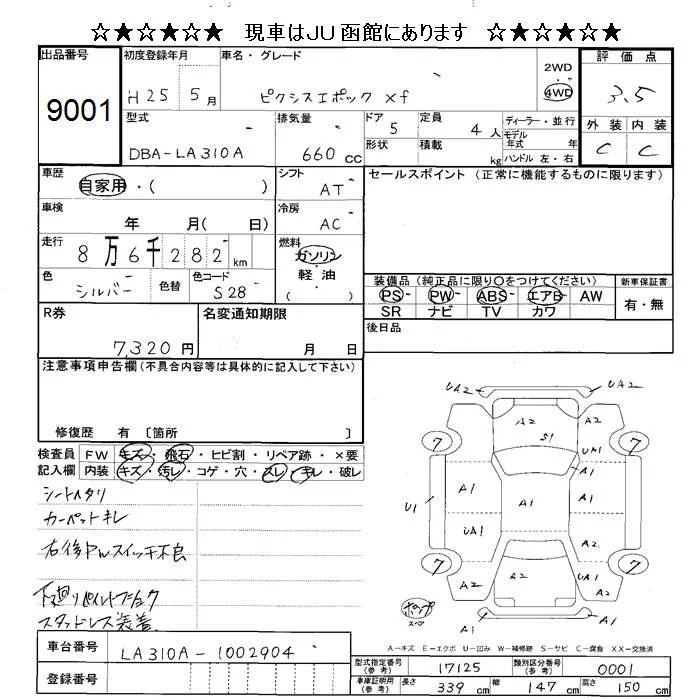 ☆★☆★☆★ 現車はJU函館にあります ☆★☆★☆★
出品番号 9001
初度登録年月 H25 5月
車名・グレード ピクシスエポック Xf
2WD 4WD
評価点 3.5
外装 内装
C C
型式 DBA-LA310A
排気量 660 CC
ドア 5
形状
定員 4人
積載 kg
ディーラー・並行
モデル年式 年式
ハンドル 左・右
車歴 自家用・( )
シフト AT
セールスポイント (正常に機能するものに限ります)
車検 年 月( 日)
冷房 AC
走行 8万6千282km
燃料 ガソリン 軽油 ( )
色 シルバー 色替
色コード S28
装備品 (純正品に限り○をつけてください)
PS PW ABS エアB AW
SR ナビ TV カワ
新車保証書
有・無
R券 7,320円
名変通知期限 月 日
後日品
注意事項申告欄 (不具合内容等は具体的に記入して下さい)
修復歴 有 〔箇所 〕
検査員 FW キズ・飛石・ヒビ割・リペア跡・×要
記入欄 内装 キズ・汚レ・コゲ・穴・スレ・キレ・破レ
シートヘタリ
カーペットキレ
右後PWスイッチ不良
下廻リペイントフショク
スタッドレス装着
UA2 UA2
A2 A2
S1
7 7
UA1
A1
A1 A1 A1
U1
UA1 A1
A2
7 7
A2 A2
A2
A1
A-キズ E-エクボ U-凹み W-補修跡 S-サビ C-腐食 XX-交換済
車台番号 LA310A-1002904
登録番号
型式指定番号 (参考) 17125
類別区分番号 (参考) 0001
車庫証明用 (参考) 長さ 339cm 幅 147cm 高さ 150cm